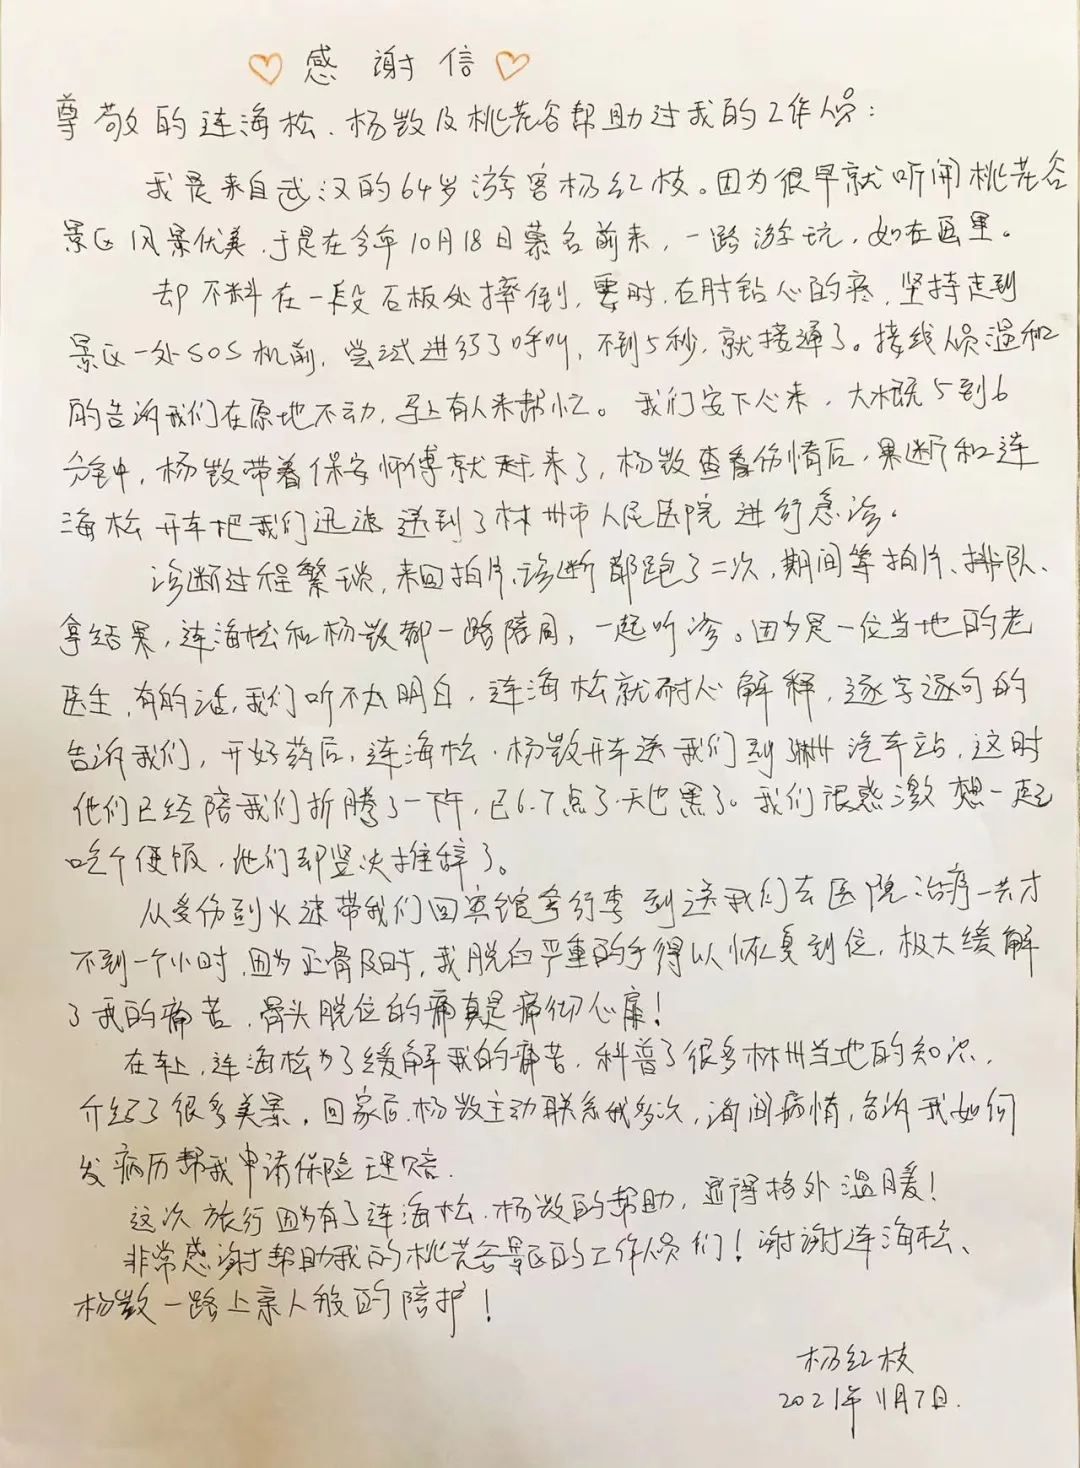 感谢信
尊敬的连海松、杨数及桃花谷帮助过我的工作人员：
我是来自武汉的64岁游客杨红枝。因为很早就听闻桃花谷
景区风景优美，于是在今年10月18日慕名前来，一路游玩，如在画里。
却不料在一段石板处摔倒，霎时，右肘钻心的疼，坚持走到
景区一处SOS机前，尝试进行了呼叫，不到5秒，就接通了。接线人员温和
的告诉我们在原地不动，马上有人来帮忙。我们安下心来，大概5到6
分钟，杨数带着保安师傅就赶来了，杨数查看伤情后，果断和连
海松开车把我们迅速送到了林州市人民医院进行急诊。
诊断过程繁琐，来回拍片、诊断都跑了二次，期间等拍片、排队、
拿结果，连海松和杨数都一路陪同，一起听诊。因为是一位当地的老
医生，有的话，我们听不太明白，连海松就耐心解释，逐字逐句的
告诉我们，开好药后，连海松、杨数开车送我们到林州汽车站，这时
他们已经陪我们折腾了一下午，已6.7点了，天也黑了。我们很感激想一起
吃个便饭，他们却坚决推辞了。
从受伤到火速带我们回宾馆拿行李到送我们去医院治疗一共才
不到一个小时，因为正骨及时，我脱臼严重的手得以恢复到位，极大缓解
了我的痛苦，骨头脱位的痛真是痛彻心扉！
在车上，连海松为了缓解我的痛苦，科普了很多林州当地的知识，
介绍了很多美景，回家后，杨数主动联系我多次，询问病情，告诉我如何
发病历帮我申请保险理赔。
这次旅行因为有了连海松、杨数的帮助，显得格外温暖！
非常感谢帮助我的桃花谷景区的工作人员们！谢谢连海松、
杨数一路上亲人般的陪护！
杨红枝
2021年11月7日.